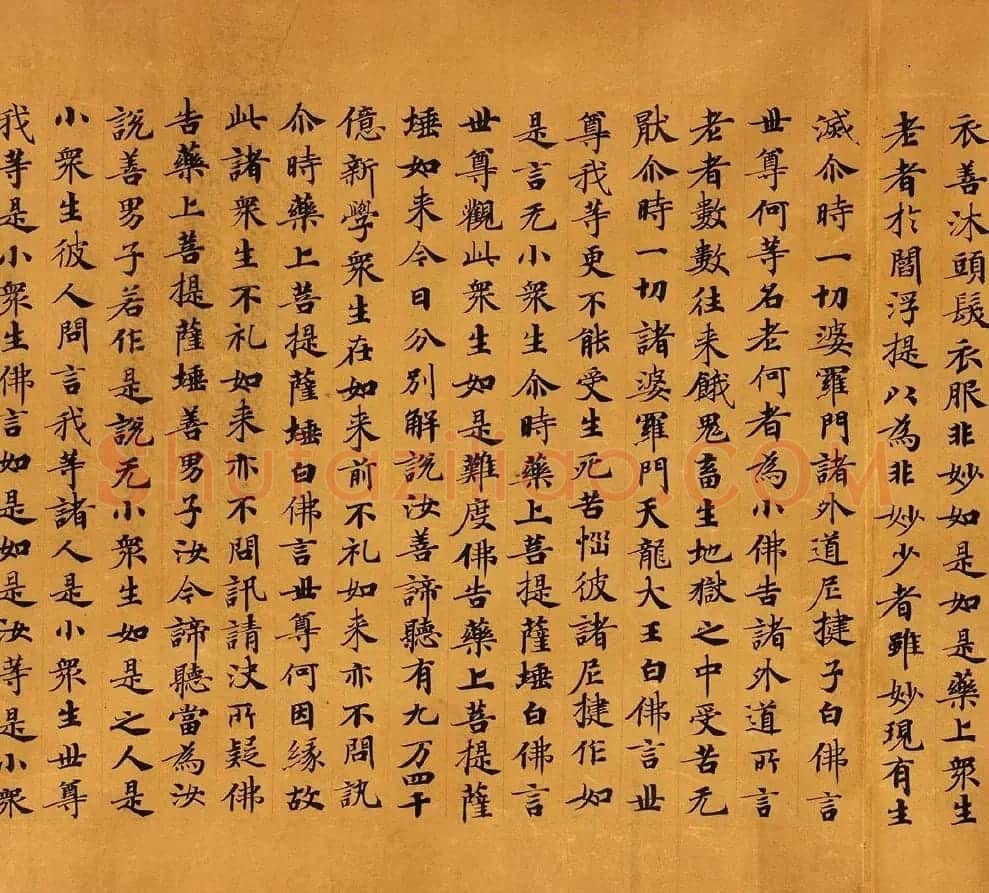 衣善沐頭髮衣服非妙如是如是藥上衆生
老者於閻浮提以為非妙少者雖妙現有生
滅尒時一切婆羅門諸外道尼揵子白佛言
世尊何等名老何者為小佛告諸外道所言
老者數數往来餓鬼畜生地獄之中受苦无
猒尒時一切諸婆羅門天龍大王白佛言世
尊我等更不能受生死苦惱彼諸尼揵作如
是言无小衆生尒時藥上菩提薩埵白佛言
世尊觀此衆生如是難度佛告藥上菩提薩
埵如来今日分別解說汝善諦聽有九万四千
億新學衆生在如来前不礼如来亦不問訊
尒時藥上菩提薩埵白佛言世尊何因緣故
此諸衆生不礼如来亦不問訊請决所疑佛
告藥上菩提薩埵善男子汝今諦聽當為汝
說善男子若作是說无小衆生如是之人是
小衆生彼人問言我等諸人是小衆生世尊
我等是小衆生佛言如是如是汝等是小衆
shufazijiao.com